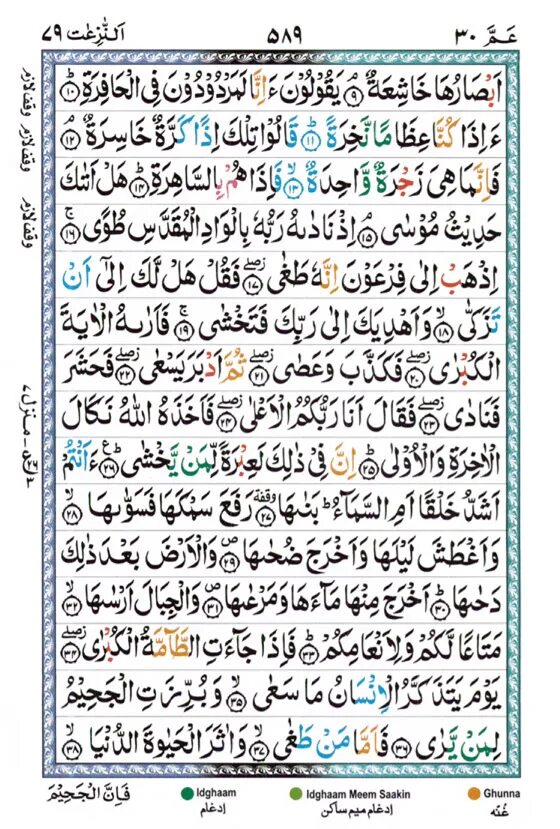 عَمَّ ٣٠
٥٨٩
اَلنّٰزِعٰت ٧٩
اَبْصَارُهَا خَاشِعَةٌ ۘ ٩ يَقُوْلُوْنَ ءَاِنَّا لَمَرْدُوْدُوْنَ فِى الْحَافِرَةِ ؕ ١٠
ءَاِذَا كُنَّا عِظَامًا نَّخِرَةً ؕ ١١ قَالُوْا تِلْكَ اِذًا كَرَّةٌ خَاسِرَةٌ ۘ ١٢
فَاِنَّمَا هِىَ زَجْرَةٌ وَّاحِدَةٌ ۙ ١٣ فَاِذَا هُمْ بِالسَّاهِرَةِ ؕ ١٤ هَلْ اَتٰٮكَ
حَدِيْثُ مُوْسٰى ۘ ١٥ اِذْ نَادٰٮهُ رَبُّهٗ بِالْوَادِ الْمُقَدَّسِ طُوًى ۚ ١٦
اِذْهَبْ اِلٰى فِرْعَوْنَ اِنَّهٗ طَغٰى ۖ ١٧ فَقُلْ هَلْ لَّكَ اِلٰٓى اَنْ
تَزَكّٰى ۙ ١٨ وَاَهْدِيَكَ اِلٰى رَبِّكَ فَتَخْشٰى ۚ ١٩ فَاَرٰٮهُ الْاٰيَةَ
الْكُبْرٰى ۖ ٢٠ فَكَذَّبَ وَعَصٰى ۖ ٢١ ثُمَّ اَدْبَرَ يَسْعٰى ۖ ٢٢ فَحَشَرَ
فَنَادٰى ۖ ٢٣ فَقَالَ اَنَا رَبُّكُمُ الْاَعْلٰى ۖ ٢٤ فَاَخَذَهُ اللّٰهُ نَكَالَ
الْاٰخِرَةِ وَالْاُوْلٰى ؕ ٢٥ اِنَّ فِىْ ذٰلِكَ لَعِبْرَةً لِّمَنْ يَّخْشٰى ؕ ٢٦ ءَاَنْتُمْ
اَشَدُّ خَلْقًا اَمِ السَّمَآءُ ؕ بَنٰٮهَا ٢٧ رَفَعَ سَمْكَهَا فَسَوّٰٮهَا ۙ ٢٨
وَاَغْطَشَ لَيْلَهَا وَاَخْرَجَ ضُحٰٮهَا ۖ ٢٩ وَالْاَرْضَ بَعْدَ ذٰلِكَ
دَحٰٮهَا ؕ ٣٠ اَخْرَجَ مِنْهَا مَآءَهَا وَمَرْعٰٮهَا ۖ ٣١ وَالْجِبَالَ اَرْسٰٮهَا ۙ ٣٢
مَتَاعًا لَّكُمْ وَلِاَنْعَامِكُمْ ؕ ٣٣ فَاِذَا جَآءَتِ الطَّآمَّةُ الْكُبْرٰى ۖ ٣٤
يَوْمَ يَتَذَكَّرُ الْاِنْسَانُ مَا سَعٰى ۙ ٣٥ وَبُرِّزَتِ الْجَحِيْمُ
لِمَنْ يَّرٰى ٣٦ فَاَمَّا مَنْ طَغٰى ۙ ٣٧ وَاٰثَرَ الْحَيٰوةَ الدُّنْيَا ۙ ٣٨
وقف لازم
وقف لازم
وقف لازم
منزل ٧
فَاِنَّ الْجَحِيْمَ
Idghaam
ادغام
Idghaam Meem Saakin
ادغام میم ساکن
Ghunna
غنه